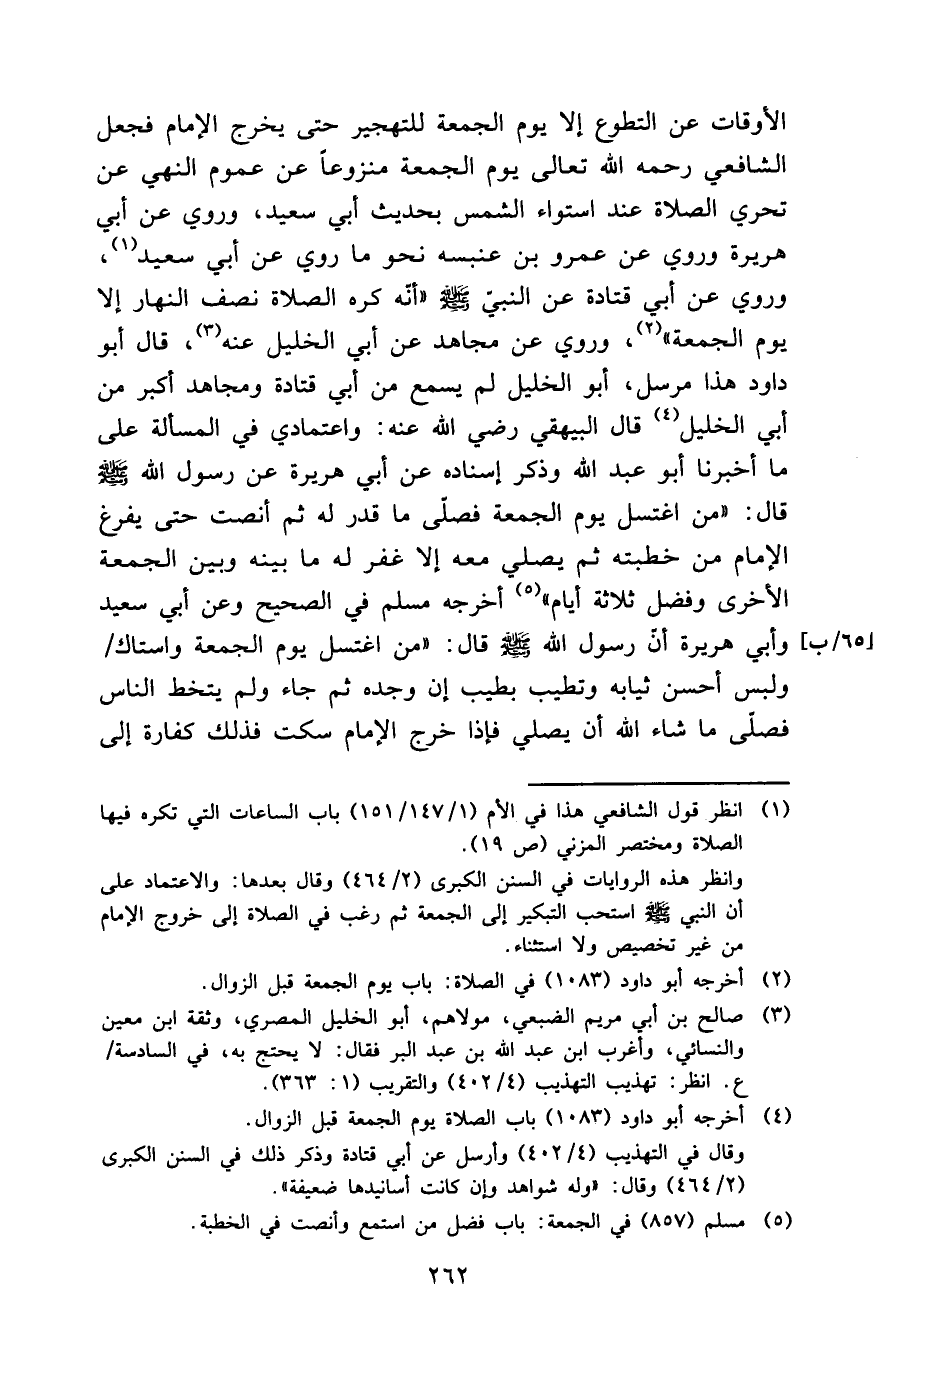 الأوقات عن التطوع إلا يوم الجمعة للتهجير حتى يخرج الإمام فجعل
الشافعي رحمه الله تعالى يوم الجمعة منزوعاً عن عموم النهي عن
تحري الصلاة عند استواء الشمس بحديث أبي سعيد، وروي عن أبي
هريرة وروي عن عمرو بن عنبسه نحو ما روي عن أبي سعيد(١)،
وروي عن أبي قتادة عن النبيّ ﷺ «أنّه كره الصلاة نصف النهار إلا
يوم الجمعة»(٢)، وروي عن مجاهد عن أبي الخليل عنه(٣)، قال أبو
داود هذا مرسل، أبو الخليل لم يسمع من أبي قتادة ومجاهد أكبر من
أبي الخليل(٤) قال البيهقي رضي الله عنه: واعتمادي في المسألة على
ما أخبرنا أبو عبد الله وذكر إسناده عن أبي هريرة عن رسول الله ﷺ
قال: «من اغتسل يوم الجمعة فصلّى ما قدر له ثم أنصت حتى يفرغ
الإمام من خطبته ثم يصلي معه إلا غفر له ما بينه وبين الجمعة
الأخرى وفضل ثلاثة أيام»(٥) أخرجه مسلم في الصحيح وعن أبي سعيد
[٦٥/ب] وأبي هريرة أنّ رسول الله ﷺ قال: «من اغتسل يوم الجمعة واستاك/
ولبس أحسن ثيابه وتطيب بطيب إن وجده ثم جاء ولم يتخط الناس
فصلّى ما شاء الله أن يصلي فإذا خرج الإمام سكت فذلك كفارة إلى
(١) انظر قول الشافعي هذا في الأم (١/١٤٧/١٥١) باب الساعات التي تكره فيها
الصلاة ومختصر المزني (ص ١٩).
وانظر هذه الروايات في السنن الكبرى (٢/٤٦٤) وقال بعدها: والاعتماد على
أن النبي ﷺ استحب التبكير إلى الجمعة ثم رغب في الصلاة إلى خروج الإمام
من غير تخصيص ولا استثناء.
(٢) أخرجه أبو داود (١٠٨٣) في الصلاة: باب يوم الجمعة قبل الزوال.
(٣) صالح بن أبي مريم الضبعي، مولاهم، أبو الخليل المصري، وثقة ابن معين
والنسائي، وأغرب ابن عبد الله بن عبد البر فقال: لا يحتج به، في السادسة/
ع. انظر: تهذيب التهذيب (٤/٤٠٢) والتقريب (١: ٣٦٣).
(٤) أخرجه أبو داود (١٠٨٣) باب الصلاة يوم الجمعة قبل الزوال.
وقال في التهذيب (٤/٤٠٢) وأرسل عن أبي قتادة وذكر ذلك في السنن الكبرى
(٢/٤٦٤) وقال: «وله شواهد وإن كانت أسانيدها ضعيفة».
(٥) مسلم (٨٥٧) في الجمعة: باب فضل من استمع وأنصت في الخطبة.
٢٦٢